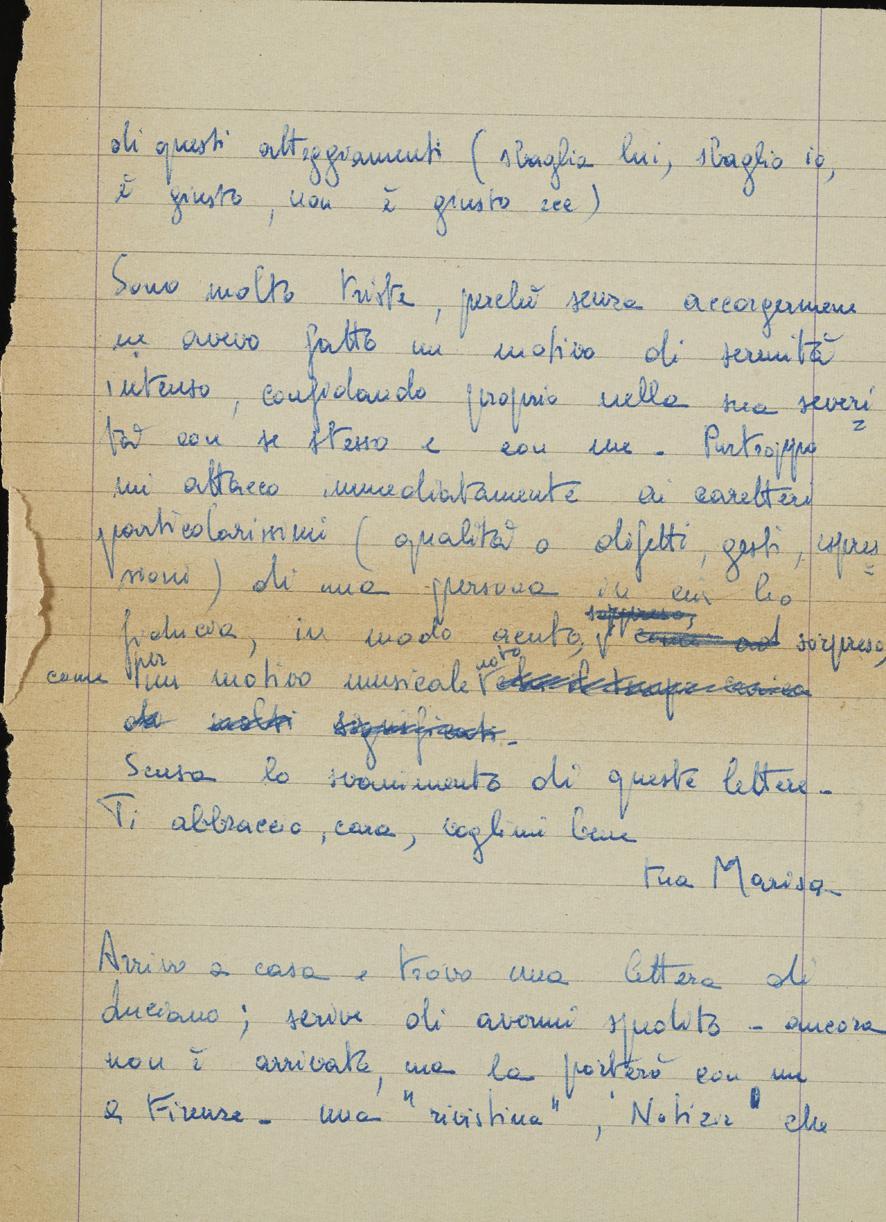 di questi atteggiamenti (sbaglia lui, sbaglio io,
è giusto, non è giusto ecc)
Sono molto triste, perchè senza accorgermene
ne avevo fatto un motivo di serenità
intenso, confidando proprio nella sua severi
tà con se stesso e con me - Purtroppo
mi attacco immediatamente ai caratteri
particolarissimi (qualità o difetti, gesti, espres
sioni) di una persona in cui ho
fiducia, in modo acuto, sorpreso, come ad sorpreso,
come per un motivo musicale noto
da molti significati -
Scusa lo svanimento di queste lettere -
Ti abbraccio, cara, voglimi bene
tua Marisa
Arrivo a casa e trovo una lettera di
Luciano; scrive di avermi spedito - ancora
non è arrivata, ma la porterò con me
a Firenze - una "rivistina", "Notizie" che